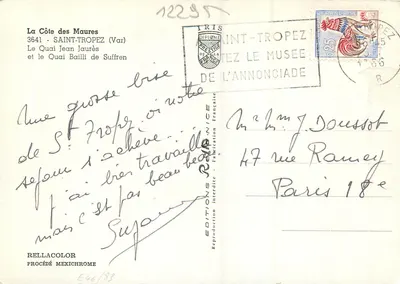 12295
La Côte des Maures
3641 - SAINT-TROPEZ (Var)
Le Quai Jean Jaurès
et le Quai Bailli de Suffren
SAINT-TROPEZ
LE MUSEE
DE L'ANNONCIADE
Une grosse bise
de St Tropez où notre
séjour s'achève.
j'ai bien travaillé
mais c'est pas beau beau
Suzanne
M & Mme J. Doussot
47 rue Ramey
Paris 18e
EDITIONS
NICE
Reproduction interdite
Fabrication française
RELLACOLOR
PROCÉDÉ MEXICHROME